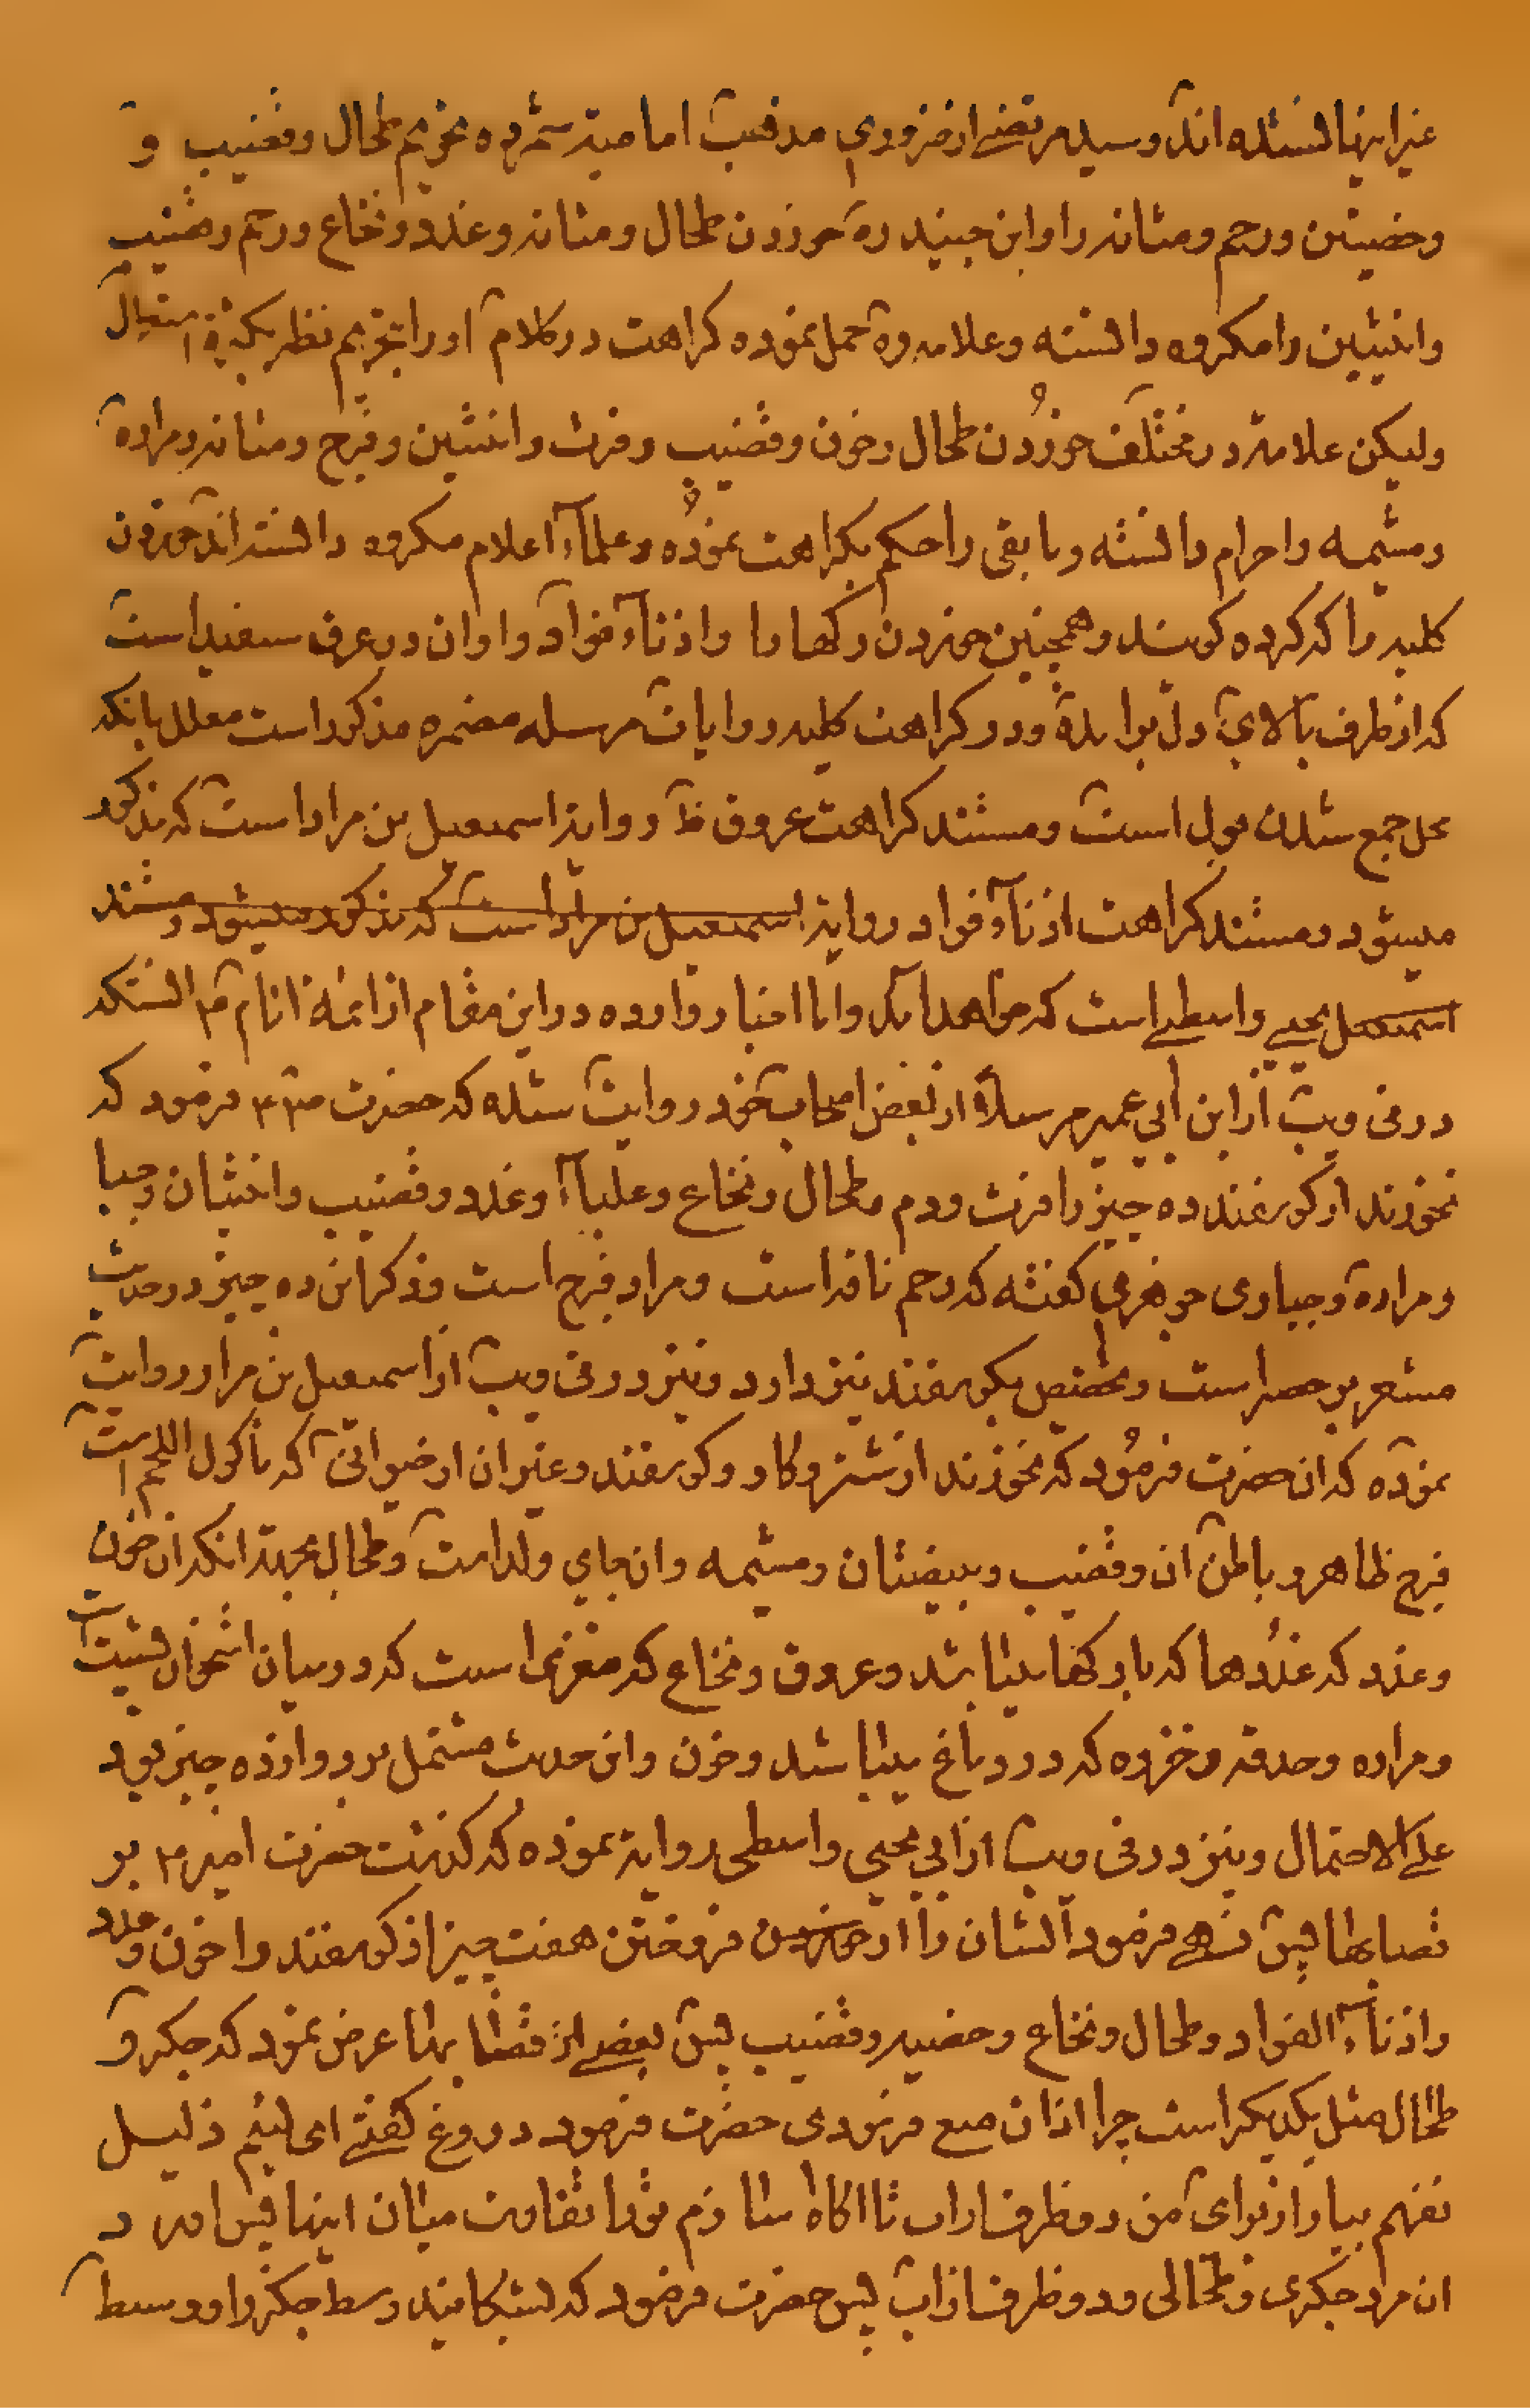 غیر اینها دانسته‌اند و سید مرتضی از ضروری مذهب امامیه شمرده تحریم طحال و قضیب و
و خصیتین و رحم و مثانه را و ابن جنید ره خوردن طحال و مثانه و غدد و نخاع و رحم و قضیب
و انثیین را مکروه دانسته و علامه ره حمل نموده کراهت در کلام او را بتحریم نظر بکثرة استعمال
ولیکن علامه در مختلف خوردن طحال و خون و قضیب و فرث و انثیین و فرج و مثانه و مراره
و مشیمه را حرام دانسته و مابقی را حکم بکراهت نموده و علماء اعلام مکروه دانسته‌اند خوردن
کلیه را که کرده کویند و همچنین خوردن رکها را و اذناء فواد را و ان در عرف سفید است
که از طرف بالای دل براید و در کراهت کلیه روایات مرسله مضمره مذکور است معلل بانکه
محل جمع شدن بول است و مستند کراهت عروق روایة اسمعیل بن مرار است که مذکور
میشود و مستند کراهت اذناء فواد روایة اسمعیل بن مرار است که مذکور میشود و مستند
اسمعیل یحیی واسطی است که خواهد آمد و اما اخبار وارده در این مقام از ائمه انام ع انستکه
در فی ویب از ابن ابی عمیر مرسلا از بعض اصحاب خود روایت شده که حضرت فرمود که
نخورند از کوسفند ده چیز را فرث و دم و طحال و نخاع و علباء و غدد و قضیب و انثیان و حیا
و مراره و حیا وی جوهری کفته که رحم ناقه است و مراد فرج است و ذکر این ده چیز در حدیث
مشعر بر حصر است و تخصیص بکوسفند نیز دارد و نیز در فی ویب از اسمعیل بن مرار روایت
نموده که ان حضرت فرمود که نخورند از شتر و کاو و کوسفند و غیر ان از حیواناتی که ماکول اللحم است
فرج ظاهر و باطن ان و قضیب و بیضتان و مشیمه و ان جای ولد است و طحال بجهة انکه ان خون است
و غدد که غدّدها که با رکها میباشد و عروق و نخاع که مغزی است که در میان استخوان پشت است
و مراره و حدقه و خرزه که در دماغ میباشد و خون و این حدیث مشتمل بر دوازده چیز بود
علی الاحتمال و نیز در فی ویب از ابی یحیی واسطی روایة نموده که کذشت حضرت امیر ع بر
قصابها پس نهی فرمود ایشان را از فروختن هفت چیز از کوسفند را خون و غدد
و اذناء الفواد و طحال و نخاع و خصیه و قضیب پس بعضی از قصابها عرض نمود که جکر و
طحال مثل یکدیکر است چرا از ان منع فرمودی حضرت فرمود دروغ کفتی ای لئیم ذلیل
نفهم بیاور از برای من دو ظرف از اب تا اکاه سازم تو را بتفاوت میان اینها پس اورد
ان مرد جکری و طحالی و دو ظرف از اب پس حضرت فرمود که بشکافند وسط جکر را و وسط